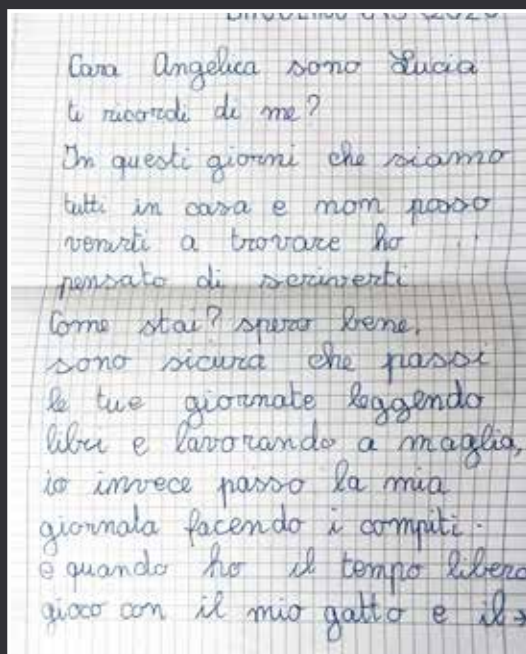 Cara Angelica sono Lucia
ti ricordi di me?
In questi giorni che siamo
tutti in casa e non posso
venirti a trovare ho
pensato di scriverti
Come stai? spero bene,
sono sicura che passi
le tue giornate leggendo
libri e lavorando a maglia,
io invece passo la mia
giornata facendo i compiti.
e quando ho il tempo libero
gioco con il mio gatto e il →